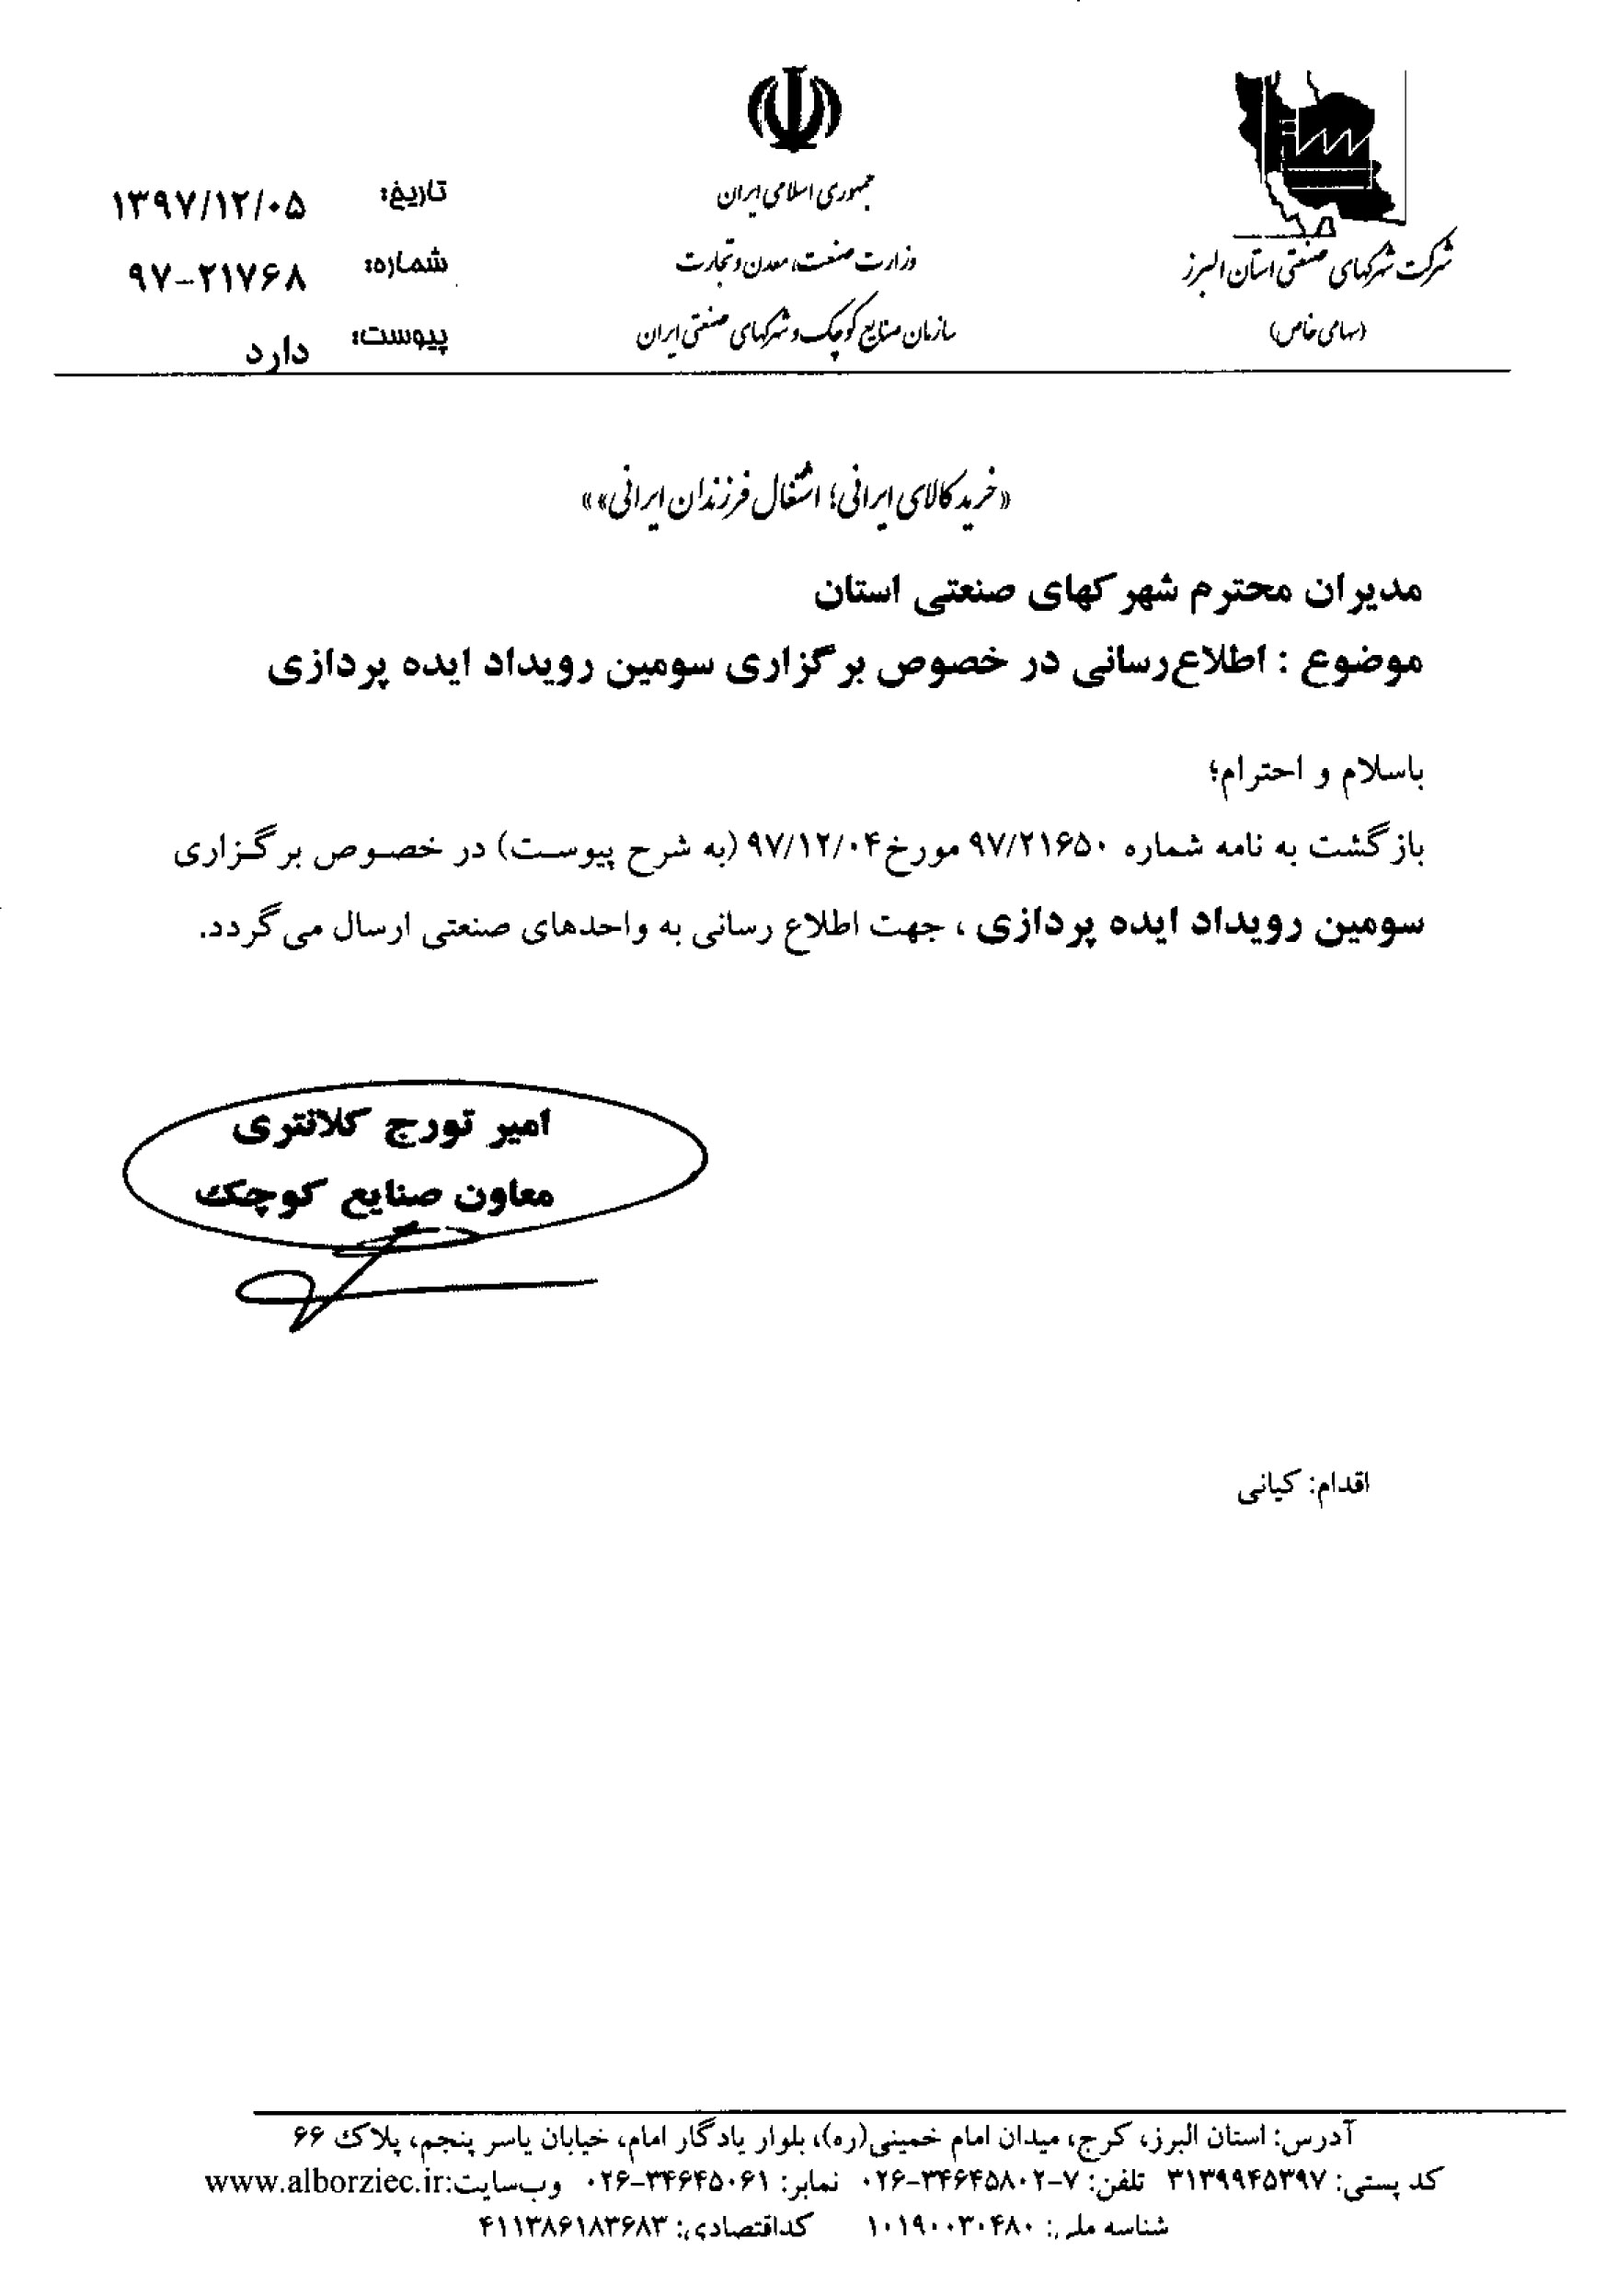 شرکت شهرکهای صنعتی استان البرز
(سهامی خاص)
جمهوری اسلامی ایران
وزارت صنعت، معدن و تجارت
سازمان صنایع کوچک و شهرکهای صنعتی ایران
تاریخ: ۱۳۹۷/۱۲/۰۵
شماره: ۹۷-۲۱۷۶۸
پیوست: دارد
«خرید کالای ایرانی؛ اشتغال فرزندان ایرانی»»
مدیران محترم شهرکهای صنعتی استان
موضوع : اطلاع‌رسانی در خصوص برگزاری سومین رویداد ایده پردازی
باسلام و احترام؛
بازگشت به نامه شماره ۹۷/۲۱۶۵۰ مورخ ۹۷/۱۲/۰۴ (به شرح پیوست) در خصوص برگزاری
سومین رویداد ایده پردازی ، جهت اطلاع رسانی به واحدهای صنعتی ارسال می گردد.
امیر تورج کلانتری
معاون صنایع کوچک
اقدام: کیانی
آدرس: استان البرز، کرج، میدان امام خمینی(ره)، بلوار یادگار امام، خیابان یاسر پنجم، پلاک ۶۶
کد پستی: ۳۱۳۹۹۴۵۳۹۷ تلفن: ۷-۰۲۶-۳۴۶۴۵۸۰۲ نمابر: ۰۲۶-۳۴۶۴۵۰۶۱ وب‌سایت:www.alborziec.ir
شناسه ملی: ۱۰۱۹۰۰۳۰۴۸۰ کداقتصادی: ۴۱۱۳۸۶۱۸۳۶۸۳